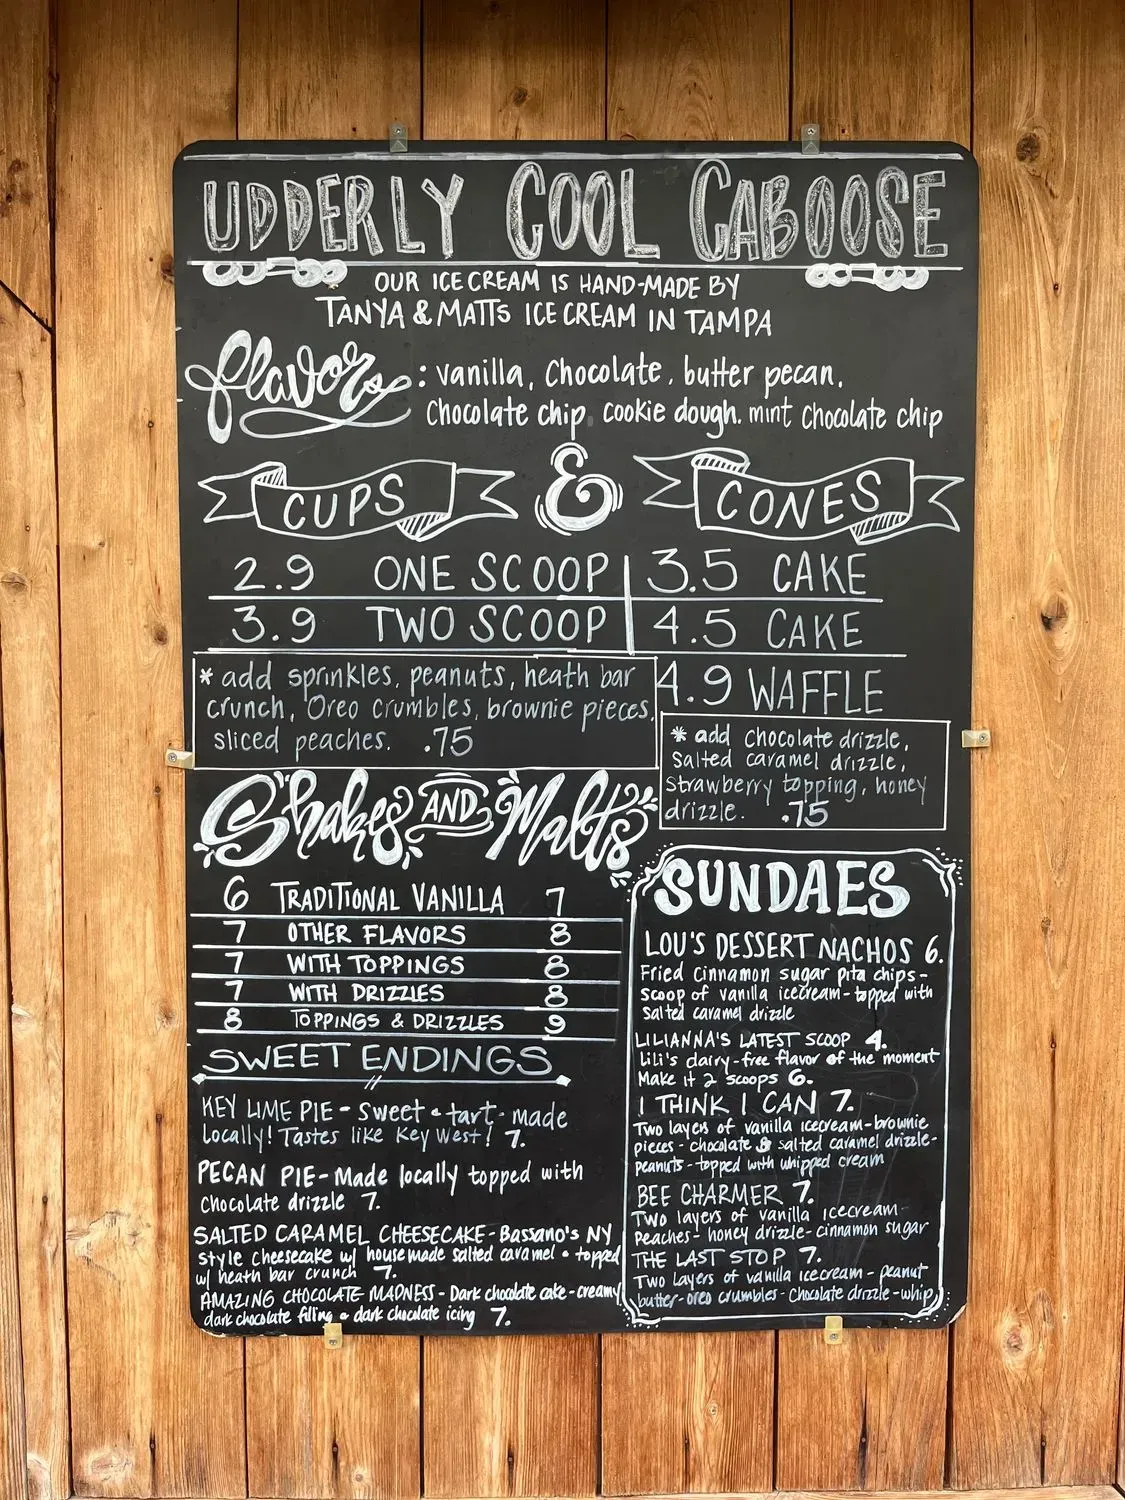 UDDERLY COOL CABOOSE
OUR ICE CREAM IS HAND-MADE BY
TANYA & MATTS ICE CREAM IN TAMPA
flavors : vanilla, Chocolate, butter pecan,
Chocolate chip, cookie dough, mint chocolate chip
CUPS & CONES
2.9 ONE SCOOP 3.5 CAKE
3.9 TWO SCOOP 4.5 CAKE
4.9 WAFFLE
* add sprinkles, peanuts, heath bar
crunch, Oreo crumbles, brownie pieces,
sliced peaches. .75
* add chocolate drizzle,
Salted caramel drizzle,
Strawberry topping, honey
drizzle. .75
Shakes AND Malts
6 TRADITIONAL VANILLA 7
7 OTHER FLAVORS 8
7 WITH TOPPINGS 8
7 WITH DRIZZLES 8
8 TOPPINGS & DRIZZLES 9
SWEET ENDINGS
KEY LIME PIE - Sweet & tart - made
locally! Tastes like Key West! 7.
PECAN PIE - Made locally topped with
chocolate drizzle 7.
SALTED CARAMEL CHEESECAKE - Bassano's NY
style cheesecake w/ housemade salted caramel & topped
w/ heath bar crunch 7.
AMAZING CHOCOLATE MADNESS - Dark chocolate cake - creamy
dark chocolate filling & dark chocolate icing 7.
SUNDAES
LOU'S DESSERT NACHOS 6.
Fried cinnamon sugar pita chips -
Scoop of vanilla icecream - topped with
salted caramel drizzle
LILIANNA'S LATEST SCOOP 4.
Lili's dairy-free flavor of the moment
Make it 2 scoops 6.
I THINK I CAN 7.
Two layers of vanilla icecream - brownie
pieces - chocolate & salted caramel drizzle -
peanuts - topped with whipped cream
BEE CHARMER 7.
Two layers of vanilla icecream -
Peaches - honey drizzle - cinnamon sugar
THE LAST STOP 7.
Two Layers of vanilla icecream - peanut
butter - oreo crumbles - Chocolate drizzle - whip